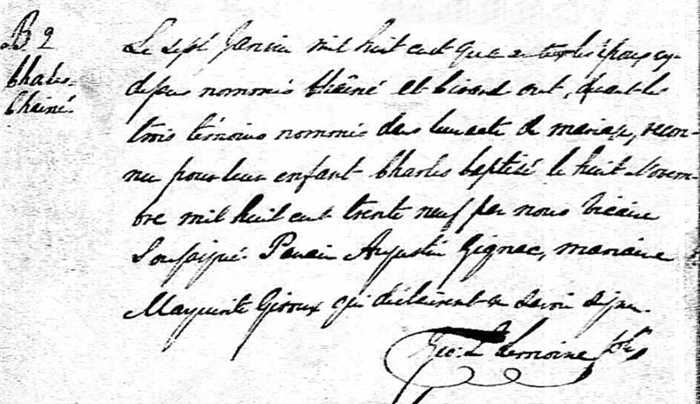 B 2
Charles
Chainé
Le sept Janvier mil huit cent quarante les époux cy-
dessus nommés Chaîné et Girard ont, devant les
trois témoins nommés dans leur acte de mariage, recon-
nu pour leur enfant Charles baptisé le huit Novem-
bre mil huit cent trente neuf par nous vicaire
Soussigné. Parain Augustin Gignac, maraine
Marguerite Giroux qui déclairent ne savoir signer.
Geo. L. Lemoine Ptre